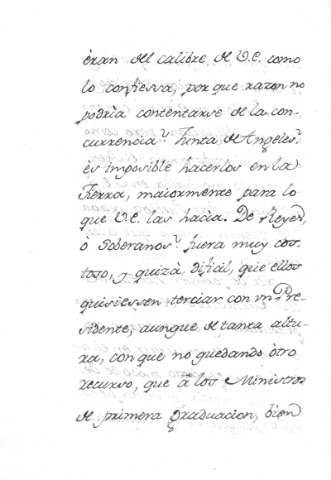 èran del calibre de V.E. como
lo confiessa, por que razon no
podria contentarse de la con-
currencia? Junta de Angeles?
ès imposible hacerlos en la
tierra, maiormente para lo
que V.E. las hacia. De Reyes,
ò Soberanos? fuera muy cos-
toso, y quizà, dificil, que ellos
quisiessen terciar con un Pre-
sidente, aunque de tanta altu-
ra, con que no quedando òtro
recurso, que à los Ministros
de primera graduacion, bien